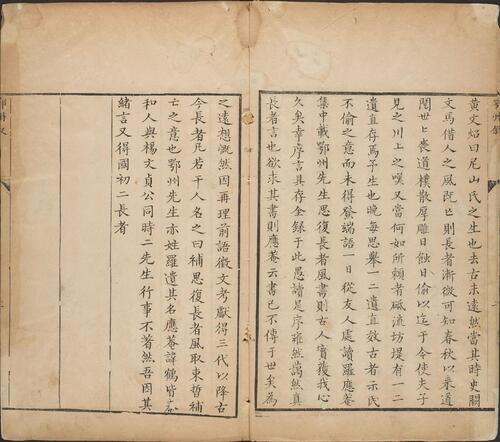 黃文焰曰尼山氏之生也去古未遠然當其時史闕
文馬借人之風既亡則長者漸微可知春秋以來道
閱世世喪道樸散厚雕日蝕日偷以迄于今使夫子
見之川上之嘆又當何如所賴者砥流坊堤有一二
遺直存焉予生也晚每思舉一二遺直效古者示民
不偷之意而未得發端語一日從友人處讀羅應菴
集中載鄂州先生思復長者風書則古人實獲我心
久矣幸序言具存全録于此愚讀是序雍然藹然真
長者言也欲求其書則應菴云書已不傳于世矣為
之遠想慨然因再理前語徵文考獻得三代以降古
今長者凡若干人名之曰補思復長者風取束晳補
亡之意也鄂州先生亦姓羅遺其名應菴諱鶴皆泰
和人與楊文貞公同時二先生行事不著然吾因其
緒言又得國初二長者